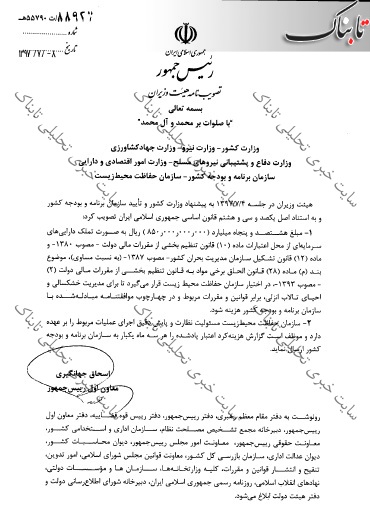 تابناک
۸۸۹۲۱/ت۵۵۷۹۰هـ
شماره
۱۳۹۷/۷/۰۸
تاریخ
جمهوری اسلامی ایران
رئیس جمهور
تصویب نامه هیئت وزیران
بسمه تعالی
"با صلوات بر محمد و آل محمد"
وزارت کشور- وزارت نیرو- وزارت جهادکشاورزی
وزارت دفاع و پشتیبانی نیروهای مسلح- وزارت امور اقتصادی و دارایی
سازمان برنامه و بودجه کشور- سازمان حفاظت محیط‌زیست
هیئت وزیران در جلسه ۱۳۹۷/۷/۴ به پیشنهاد وزارت کشور و تأیید سازمان برنامه و بودجه کشور
و به استناد اصل یکصد و سی و هشتم قانون اساسی جمهوری اسلامی ایران تصویب کرد:
۱- مبلغ هشتصد و پنجاه میلیارد (۸۵۰،۰۰۰،۰۰۰،۰۰۰) ریال به صورت تملک دارایی‌های
سرمایه‌ای از محل اعتبارات ماده (۱۰) قانون تنظیم بخشی از مقررات مالی دولت - مصوب ۱۳۸۰- و
ماده (۱۲) قانون تشکیل سازمان مدیریت بحران کشور- مصوب ۱۳۸۷- (به نسبت مساوی)، موضوع
بند (م) ماده (۲۸) قانون الحاق برخی مواد به قانون تنظیم بخشی از مقررات مالی دولت (۲)
- مصوب ۱۳۹۳-، در اختیار سازمان حفاظت محیط زیست قرار می‌گیرد تا برای مدیریت خشکسالی و
احیای تالاب انزلی، برابر قوانین و مقررات مربوط و در چهارچوب موافقتنامه مبادله‌شده با
سازمان برنامه و بودجه کشور هزینه شود.
۲- سازمان حفاظت محیط‌زیست مسئولیت نظارت و پایش دقیق اجرای عملیات مربوط را بر عهده
دارد و موظف است گزارش هزینه‌کرد اعتبار یادشده را هر سه ماه یکبار به سازمان برنامه و بودجه
کشور ارسال نماید.
اسحاق جهانگیری
معاون اول رییس‌جمهور
رونوشت به دفتر مقام معظم رهبری، دفتر رییس‌جمهور، دفتر رییس قوه قضاییه، دفتر معاون اول
رییس‌جمهور، دبیرخانه مجمع تشخیص مصلحت نظام، سازمان اداری و استخدامی کشور،
معاونت حقوقی رییس‌جمهور، معاونت امور مجلس رییس‌جمهور، دیوان محاسبات کشور،
دیوان عدالت اداری، سازمان بازرسی کل کشور، معاونت قوانین مجلس شورای اسلامی، امور تدوین،
تنقیح و انتشار قوانین و مقررات، کلیه وزارتخانه‌ها، سازمان ها و مؤسسات دولتی،
نهادهای انقلاب اسلامی، روزنامه رسمی جمهوری اسلامی ایران، دبیرخانه شورای اطلاع‌رسانی دولت و
دفتر هیئت دولت ابلاغ می‌شود.
سایت خبری تحلیلی تابناک